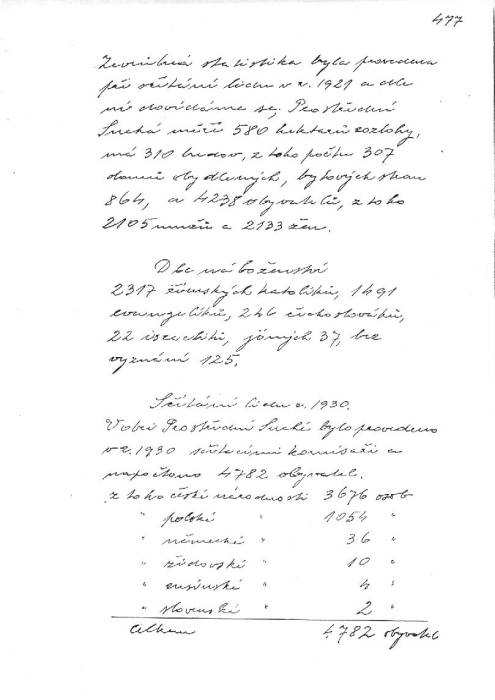 477
Zevrubná statistika byla provedena
při sčítání lidu v r. 1921 a dle
ní dovídáme se, Prostřední
Suchá měří 580 hektarů rozlohy,
má 310 budov, z toho počtu 307
domů obydlených, bytových stran
864, a 4238 obyvatelů, z toho
2105 mužů a 2133 žen.
Dle náboženství
2317 římských katolíků, 1491
evangelíků, 246 českoslováků,
22 izraelité, jiných 37, bez
vyznání 125.
Sčítání lidu r. 1930.
V obci Prostřední Suché bylo provedeno
v r. 1930 sčítacími komisaři a
napočteno 4782 obyvatel.
z toho české národnosti 3676 osob
" polské " 1054 "
" německé " 36 "
" židovské " 10 "
" rusínské " 4 "
" slovenské " 2 "
Celkem 4.782 obyvatel